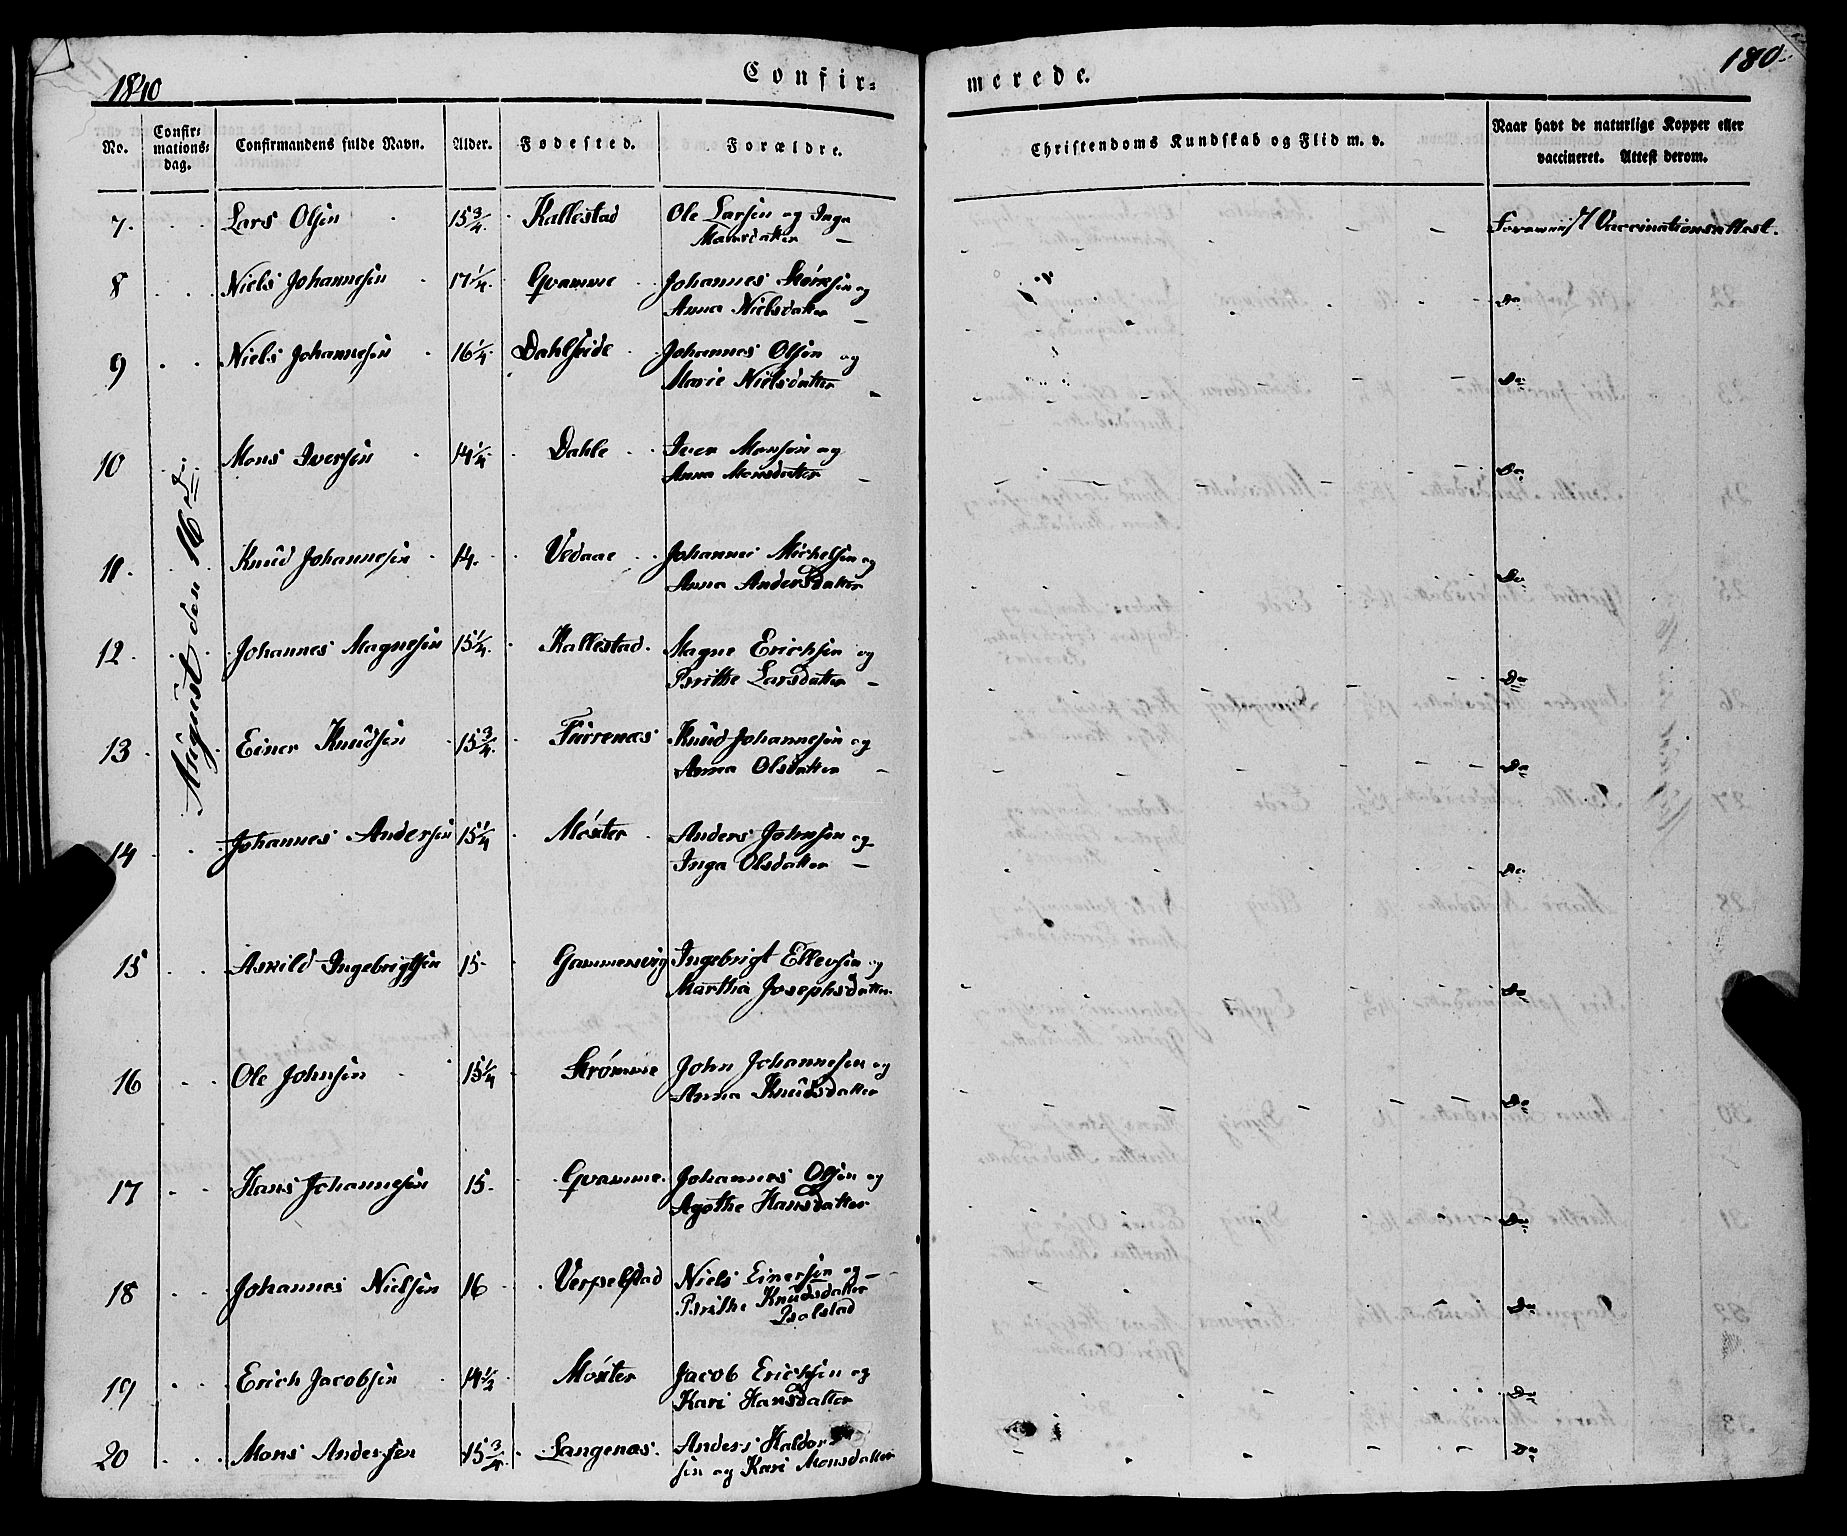 1840
Confir=
merede.
180
No.
Confir=
mations=
dag.
Confirmandens fulde Navn.
Alder.
Fødested.
Forældre.
Christendoms Kundskab og Flid m. v.
Naar havt de naturlige Kopper eller
vaccineret. Attest derom.
August den 16d
7. Lars Olsen 15 3/4 Kallestad Ole Larsen og Inga
Monsdatter
Vaccinationsattest.
8 Niels Johannesen 17 1/4 Qvamme Johannes og
Anna Nielsdatter
Do
9 Niels Johannesen 16 1/4 Johannes Olsen og
Marie Nielsdatter
Do
10 Mons Iversen 14 1/4 Dahle Iver Monsen og
Anna Monsdatter
Do
11. Knud Johannesen 14. Vedaae Johannes Michelsen og
Anna Andersdatter
Do
12. Johannes Magnesen 15 1/4 Kallestad. Magne Erichsen og
Brithe Larsdatter
Do
13 Einer Knudsen 15 3/4 Furrenæs Knud Johannesen og
Anna Olsdatter
Do
14 Johannes Andersen 15 1/4 Møster Anders Johnsen og
Inga Olsdatter
Do
15 Askild Ingebrigtsen 15 Gammersvig Ingebrigt Ellevsen og
Martha Josephsdatter
Do
16 Ole Johnsen 15 1/4 Strømme John Johannesen og
Anna Knudsdatter
Do
17 Hans Johannesen 15 Qvamme. Johannes Olsen og
Agathe Hansdatter
Do
18 Johannes Nielsen 16 Verpelstad Niels Einersen og
Brithe Knudsdatter
Do
19 Erich Jacobsen 14 1/2 Møster Jacob Erichsen og
Kari Hansdatter
Do
20 Mons Andersen 15 3/4 Langenæs. Anders Haldor
sen og Kari Monsdatter
Do